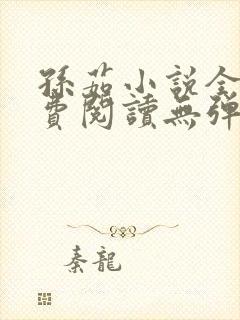 孫茹小說全
費閱讀無彈
秦龍